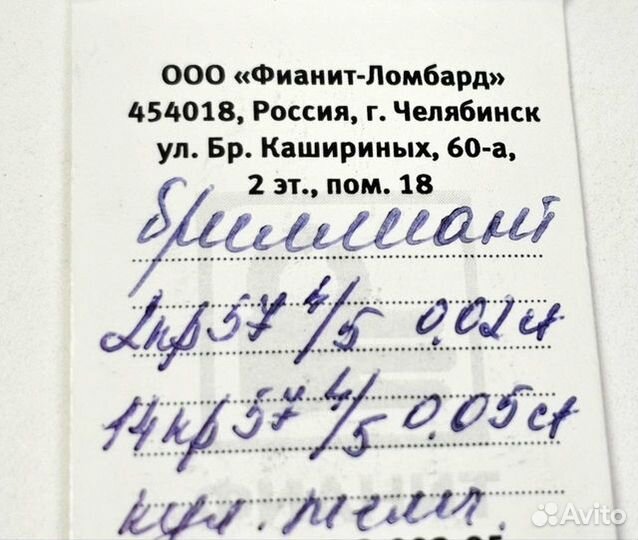 ООО «Фианит-Ломбард»
454018, Россия, г. Челябинск
ул. Бр. Кашириных, 60-а,
2 эт., пом. 18
бриллиант
2кр57 4/5 0.02ct
14кр57 4/5 0.05ct
кул. жемч.
Avito